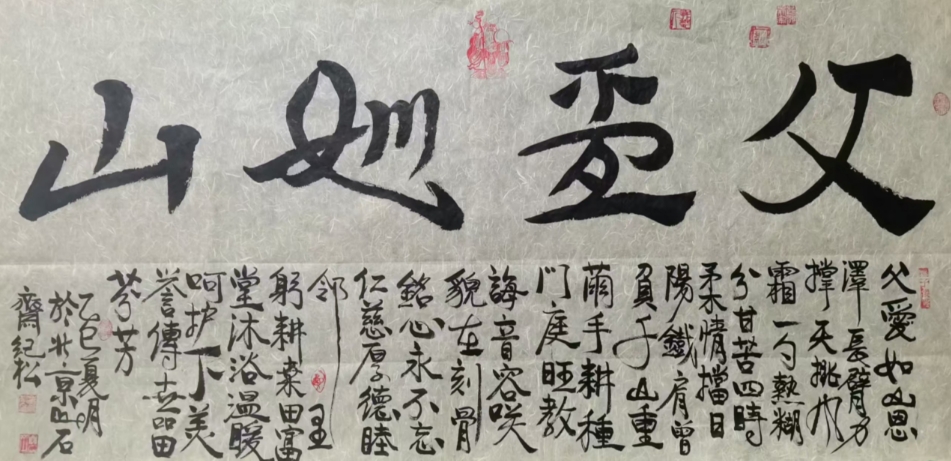 父愛如山
父愛如山恩
澤長臂力
撑天挑風
霜一勺熱糊
分甘苦四時
柔情擋日
陽鐵肩曾
負千山重
繭手耕種
門庭旺教
誨音容咲
貌在刻骨
銘心永不忘
仁慈厚德睦
邻里
躬耕桑田富
堂沐浴温暖
呵护下美
誉傳世品田
芬芳
乙巳夏月
於北京石
齋紀松